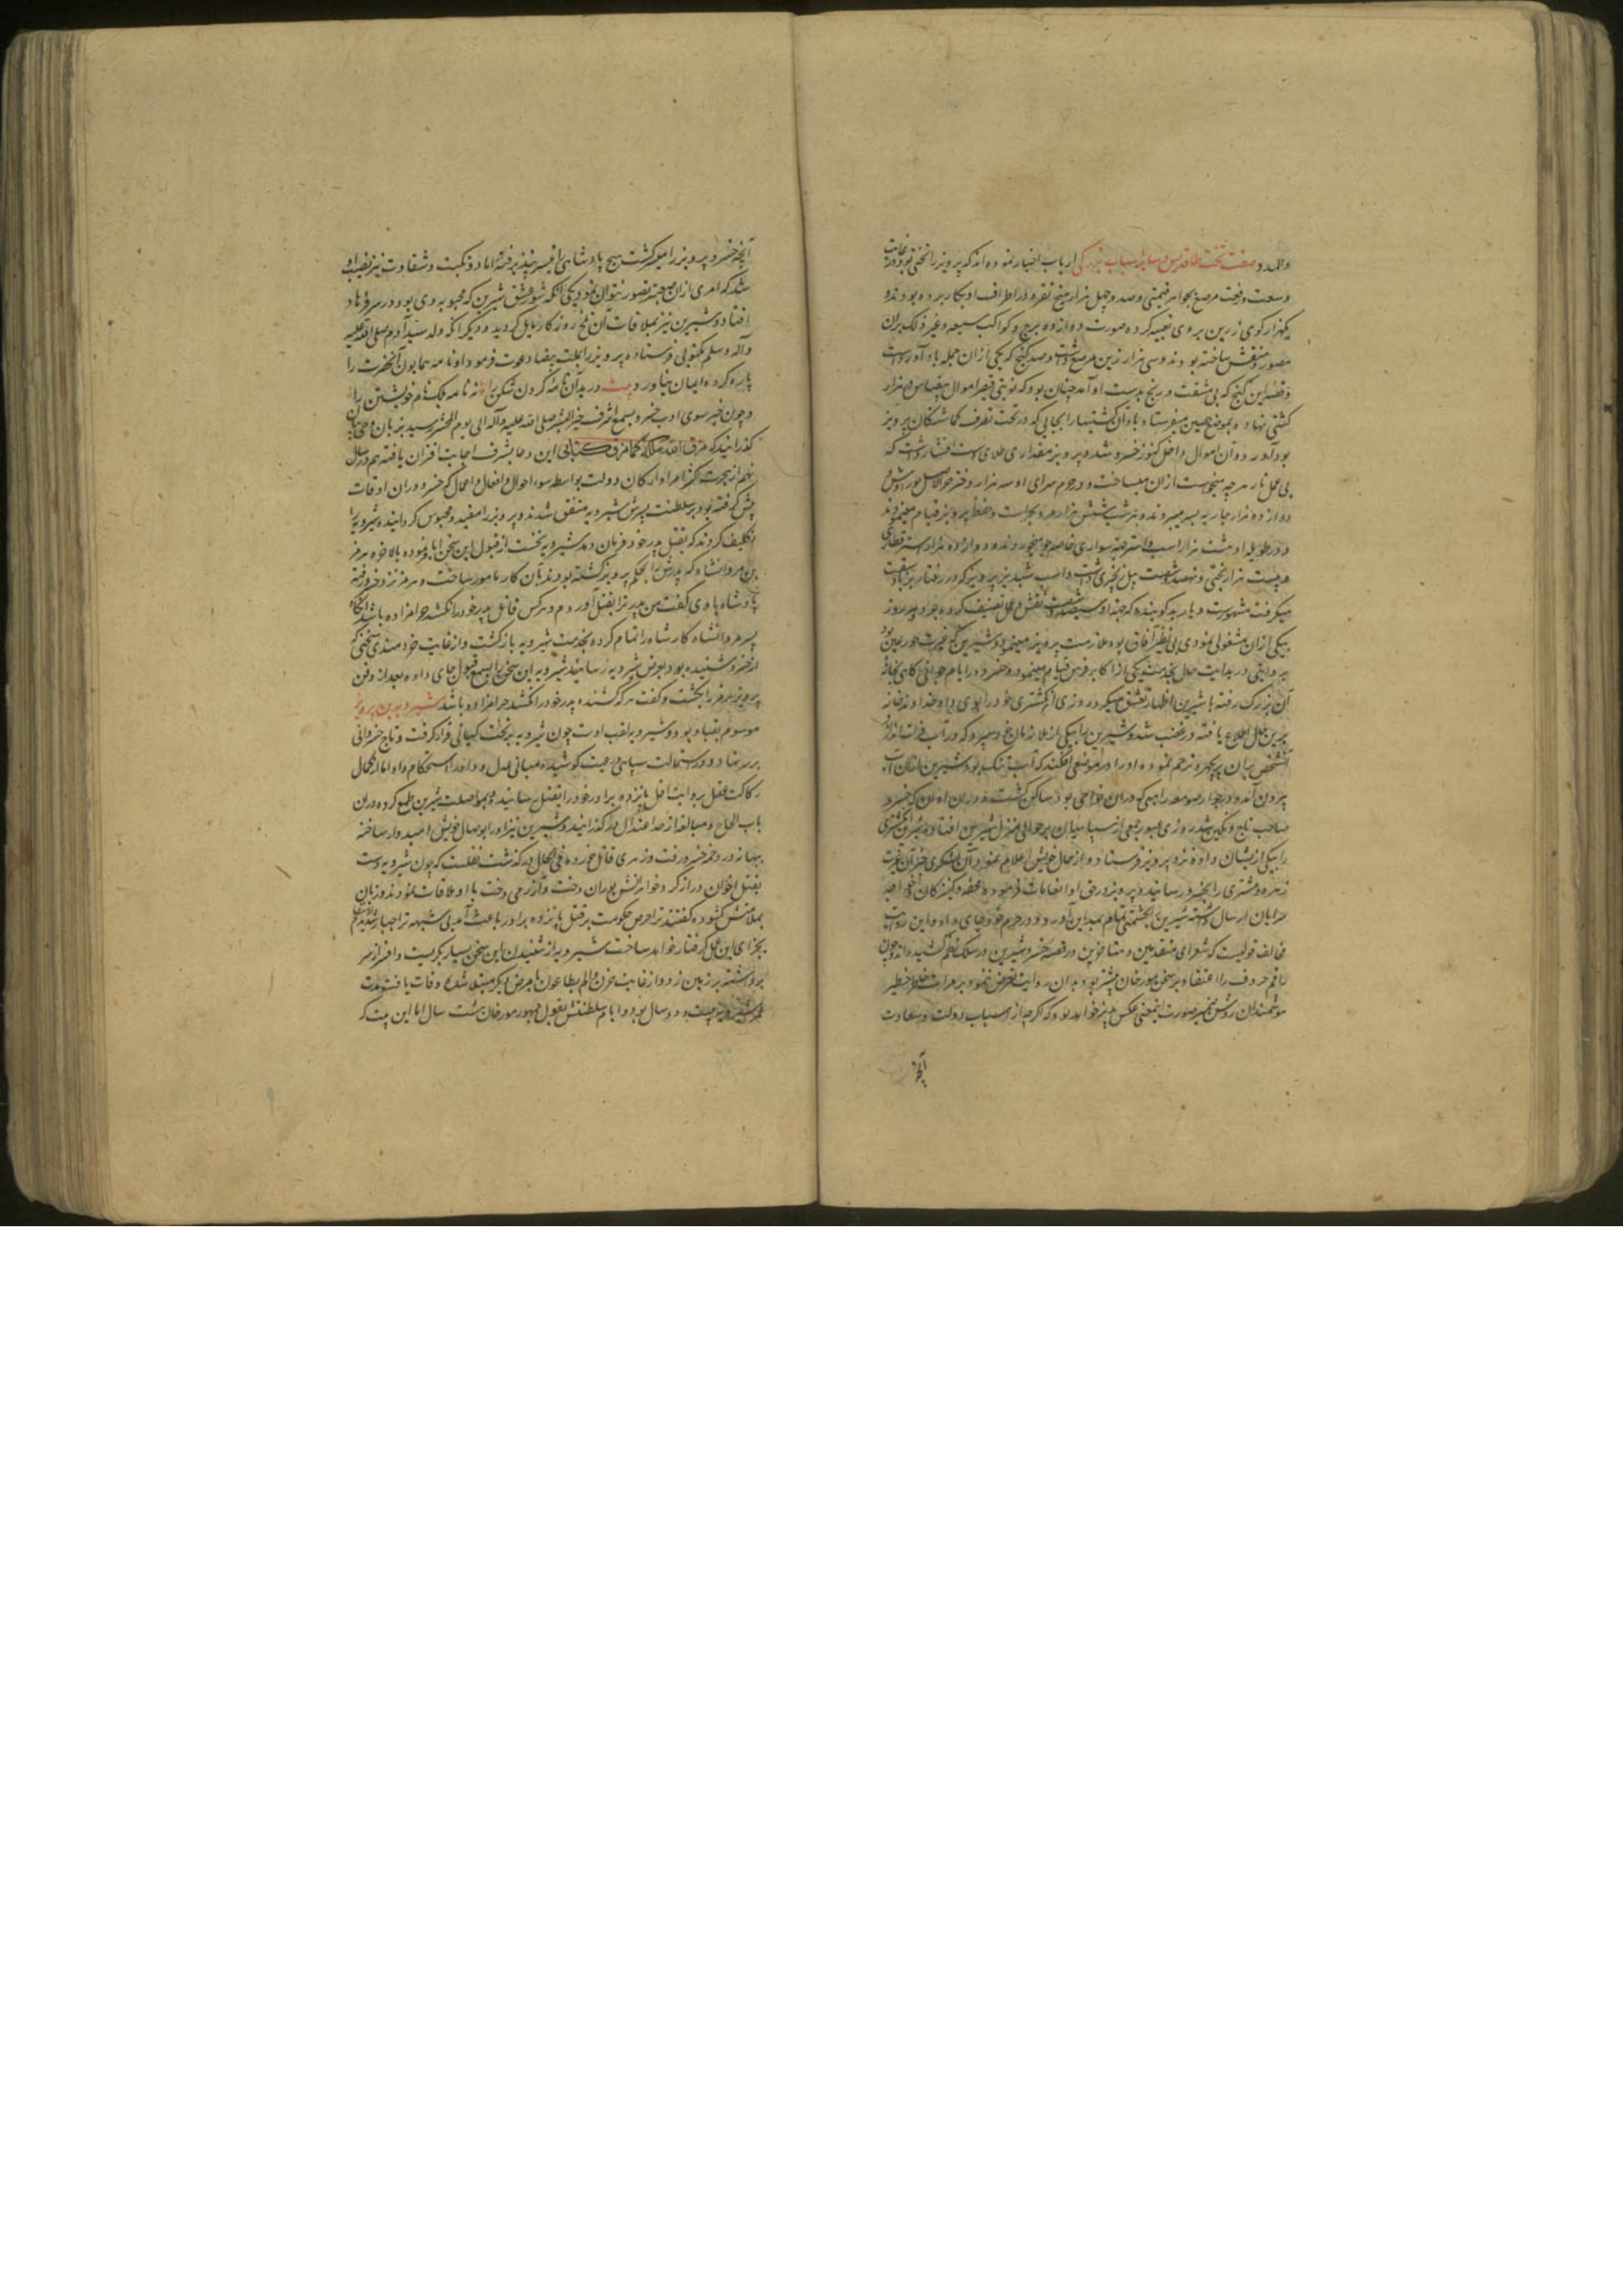 والله و صفت تخت طاقدیس و سایر اسباب بزرگی ارباب اخبار نموده‌اند که پرویز را تختی بود در غایت
وسعت و رفعت مرصع بجواهر قیمتی و صد و چهل هزار میخ نقره در اطراف او بکار برده بودند و
یکهزار کوی زرین بر وی تعبیه کرده صورت دوازده برج و کواکب سبعه و غیر ذلک بران
مصور و منقش ساخته بودند و سی هزار زین مرصع داشت و صد کنج که یکی ازان جمله باد آورد است
و قصه این کنج که بی مشقت و رنج بدست او آمد چنان بود که نوبتی قیصر اموال بیقیاس در هزار
کشتی نهاده و بموضع حصین میفرستاد و باد آن کشتیها را بجایی که در تحت تصرف گماشتگان پرویز
بود آورد و آن اموال داخل کنوز خسرو شد و پرویز مقداری طلای دست افشار داشت که
بی عمل نار هرچه میخواست ازان میساخت و در حرم سرای او سه هزار دختر
دوازده هزار جاریه بسر میبردند و هر شب شش هزار مرد بحراست و حفظ پرویز قیام مینمودند
و در طویله او هشت هزار اسب و استر جهة سواری خاصه جو میخوردند و دوازده هزار شتر قطاری
و بیست هزار بختی و نهصد و شصت پیل زنجیری داشت و اسب شبدیز پرویز که در رفتار بر باد سبقت
میگرفت مشهورست و باربد گوینده که جهة او سیصد و شصت نقش و عمل تصنیف کرده بود و هر روز
بیکی ازان مشغولی نمودی بی نظیر آفاق بود ملازمت پرویز مینمود و شیرین که غیرت حور عین بود
بروایتی در بدایت حال بخدمت یکی از اکابر فرس قیام مینمود و خسرو در ایام جوانی کاهی بخانه
آن بزرک رفته با شیرین اظهار تعشق میکرد روزی انکشتری خود را بوی داد و خداوند خانه
برین حال اطلاع یافته در غضب شد و شیرین را بیکی از ملازمان خود سپرد که در آب فرات اندازد
آنشخص بران پریچهره ترحم نموده او را در موضعی افکند که آب تنک بود و شیرین ازان آب
بیرون آمده در جوار صومعه راهبی که دران نواحی بود ساکن کشت و دران اوان که خسرو
صاحب تاج و نکین شد روزی عبور جمعی از سپاهیان بر حوالی منزل شیرین افتاد و شیرین انکشتری
را بیکی ازیشان داده نزد پرویز فرستاد و از حال خویش اعلام نمود و آن لشکری خبر آن غیرت
زهره و مشتری را بخسرو رسانید و پرویز در حق او انعامات فرموده محفه و کنیزکان و خواجه
سرایان ارسال داشته شیرین را بحشمتی تمام بمداین آورد و در حرم خود جای داد و این روایت
مخالف قولیست که شعرای متقدمین و متاخرین در قصه خسرو و شیرین در سلک نظم کشیده‌اند و چون
راقم حروف را اعتقاد بر سخن مورخان بیشتر بود بدان روایت تعرض ننمود و بر مرات خاطر خطیر
هوشمندان روشن ضمیر صورت اینمعنی عکس پذیر خواهد بود که اکرچه از اسباب دولت و سعادت
آنچه
آنچه خسرو پرویز را میسر کشت هیچ پادشاهی را میسر نپذیرفته اما دو نکبت و شقاوت نیز نصیب او
شد که امری ازان صعبتر تصور نتوان نمود یکی آنکه شور عشق شیرین که محبوبه وی بود در سر فرهاد
افتاد و شیرین نیز بملاقات آن روزکار مایل کردید و دیگر آنکه ولد سید آدم صلی الله علیه
وآله وسلم مکتوبی فرستاده پرویز را بملت بیضا دعوت فرمود و او نامه همایون آنحضرت را
پاره کرده ایمان نیاورد بیت درید آن نامه کردن شکن را نه نامه بلکه نام خویشتن را
و چون خبر سوی ادب خسرو بسمع اشرف خیر البشر صلی الله علیه وآله الی یوم المحشر رسید بزبان وحی بیان
کذرانید که مزق الله ملکه کما مزق کتابی این دعا بشرف اجابت اقتران یافته هم در سال
نهم از هجرت اکثر امرا و ارکان دولت بواسطه سوء احوال و افعال و اعمال که خسرو دران اوقات
پیش کرفته بود بر سلطنت پسرش شیرویه متفق شدند و پرویز را مقید و محبوس کردانیده شیرویه را
تکلیف کردند که بقتل پدر خود فرمان دهد شیرویه نخست از قبول این سخن ابا نموده بالاخره هرمز
بن مردانشاه که پدرش را بحکم پرویز کشته بودند بآن کار مامور ساخت و هرمز نزد خسرو رفته
پادشاه با وی کفت من پدر ترا بقتل آوردم و هرکس قاتل پدر خود را نکشد حرامزاده باشد آنگاه
پسر مردانشاه کار شاه را تمام کرده بخدمت شیرویه بازکشت و از غایت خردمندی سخنی که
از خسرو شنیده بود بعرض شیرویه رسانید شیرویه این سخن را بسمع قبول جای داده بعد از دفن
پرویز هرمز را بکشت و کفت هرکه کشنده پدر خود را نکشد حرامزاده باشد شیرویه بن پرویز
موسوم بقباد بود و شیرویه لقب اوست چون شیرویه بر تخت کیانی قرار کرفت و تاج خسروانی
بر سر نهاد و در استمالت سپاهی و رعیت کوشیده مبانی عدل و داد را استحکام داد اما از کمال
رکاکت عقل بروایت اقل پانزده برادر خود را بقتل رسانید و بمواصلت شیرین طمع کرده دران
باب الحاح و مبالغه از حد اعتدال درکذرانید و شیرین نیز او را بوصال خویش امیدوار ساخته
ببهانه در دخمه خسرو رفت و زهری قاتل خورده فی الحال درکذشت نقلست که چون شیرویه دست
بقتل اخوان دراز کرد خواهرانش پوران دخت و آزرمی دخت با او ملاقات نمودند و زبان
بملامتش کشوده کفتند ترا حرص حکومت بر قتل پانزده برادر باعث آمد بی شبهه
بجزای این عمل کرفتار خواهد ساخت شیرویه از شنیدن این سخن بسیار بکریست و افسر از سر
برداشته بر زمین زد و از غایت حزن و الم بطاعون یا مرض دیکر مبتلا شده وفات یافت مدت
عمر شیرویه بیست و دو سال بود و ایام سلطنتش بقول جمهور مورخان هشت سال اما این بیت که